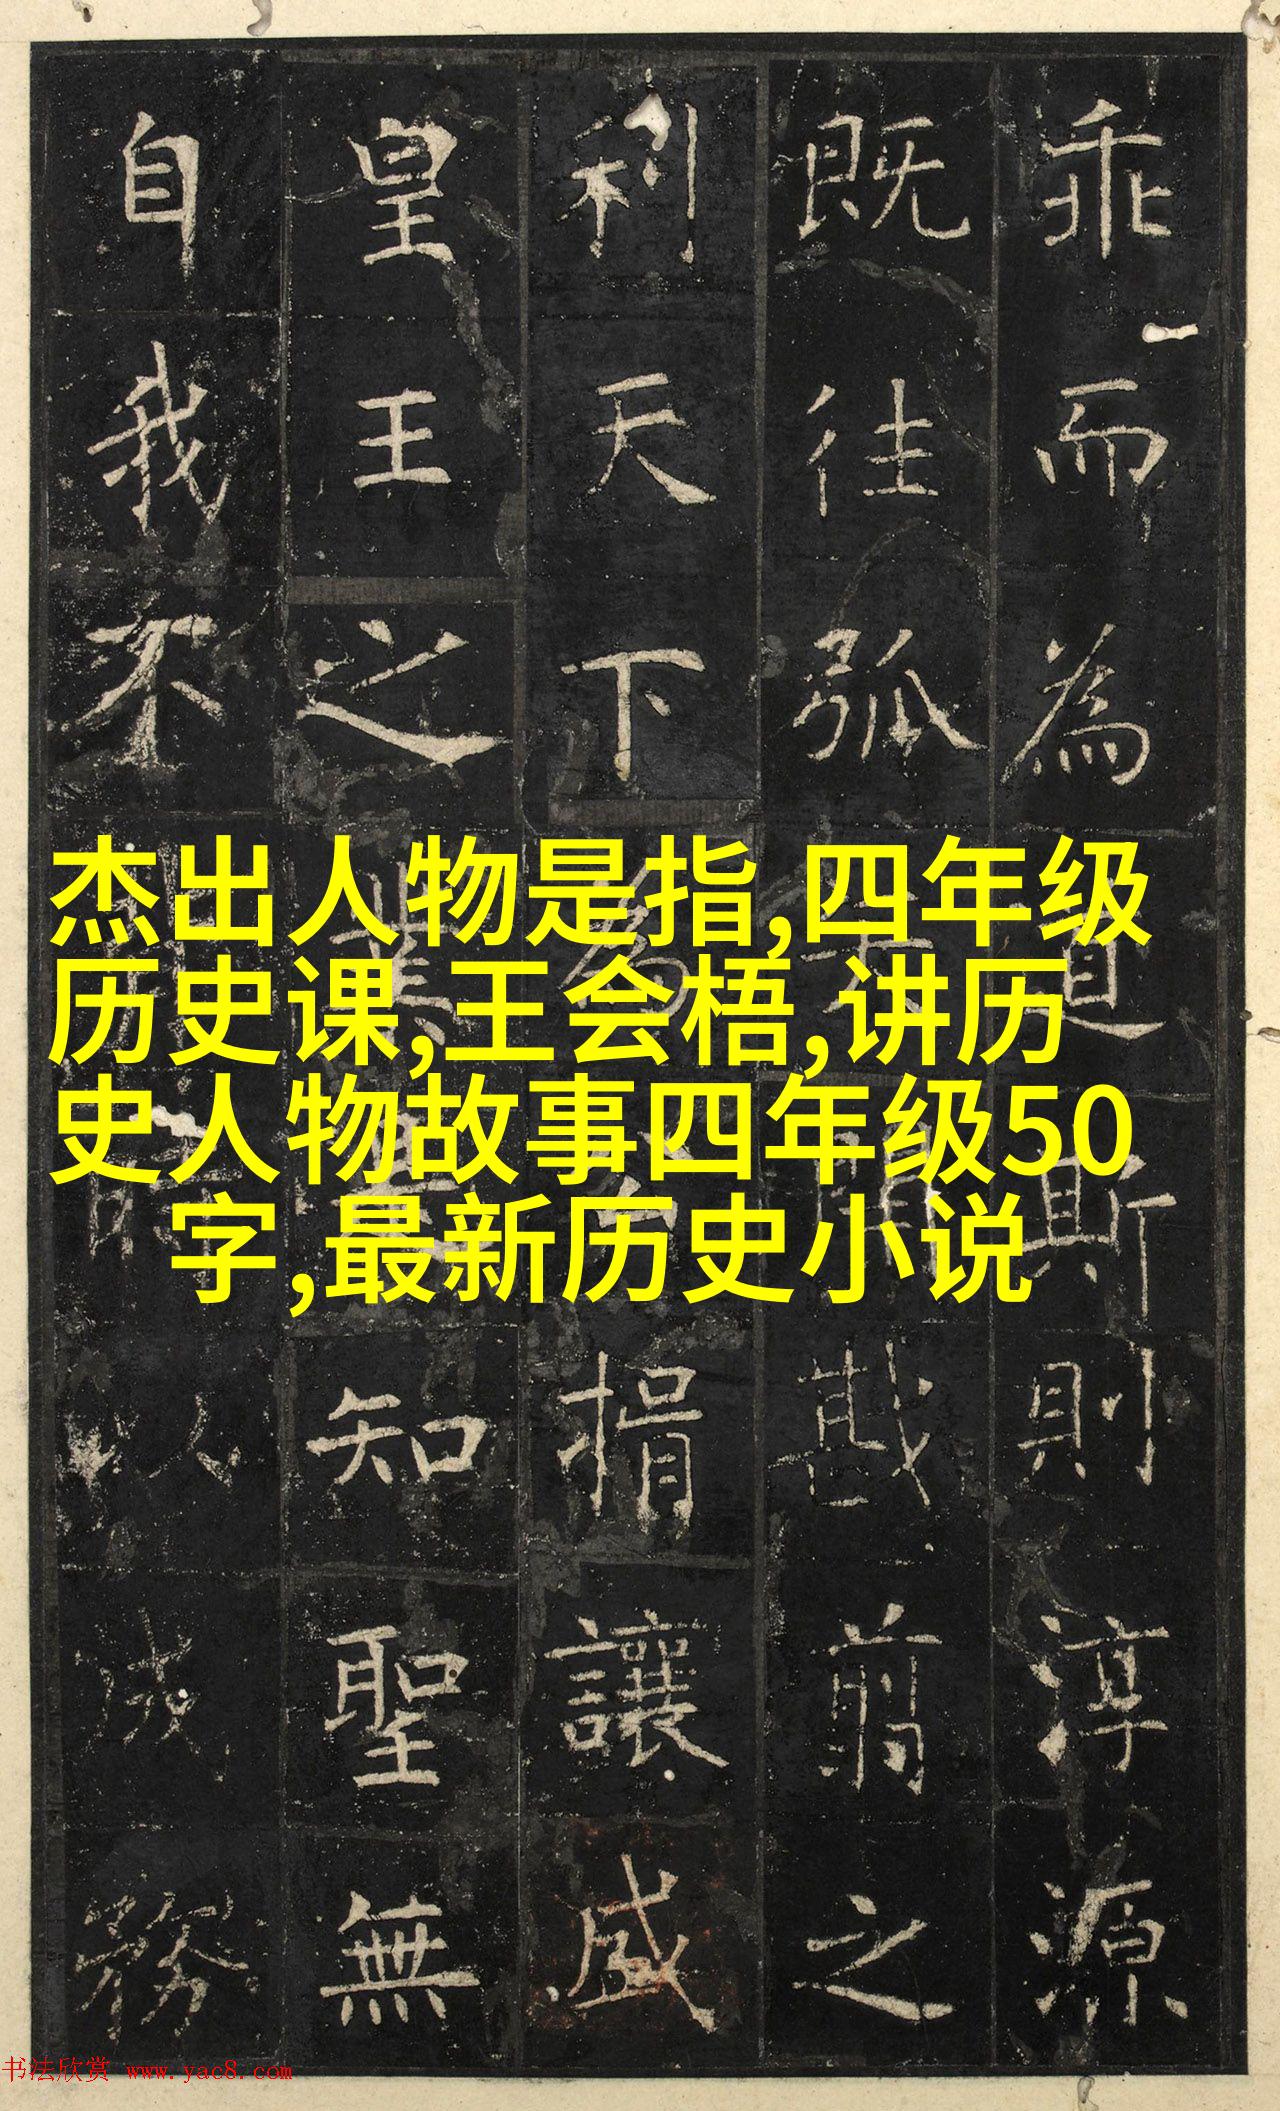 杰出人物是指,四年级
历史课,王会梧,讲历
史人物故事四年级50
字,最新历史小说
乖而為道斯則淳源
既往弧戡翦之
利天下為捐讓盛
皇王之業知聖無
自我不務
书法欣赏 www.yac8.com